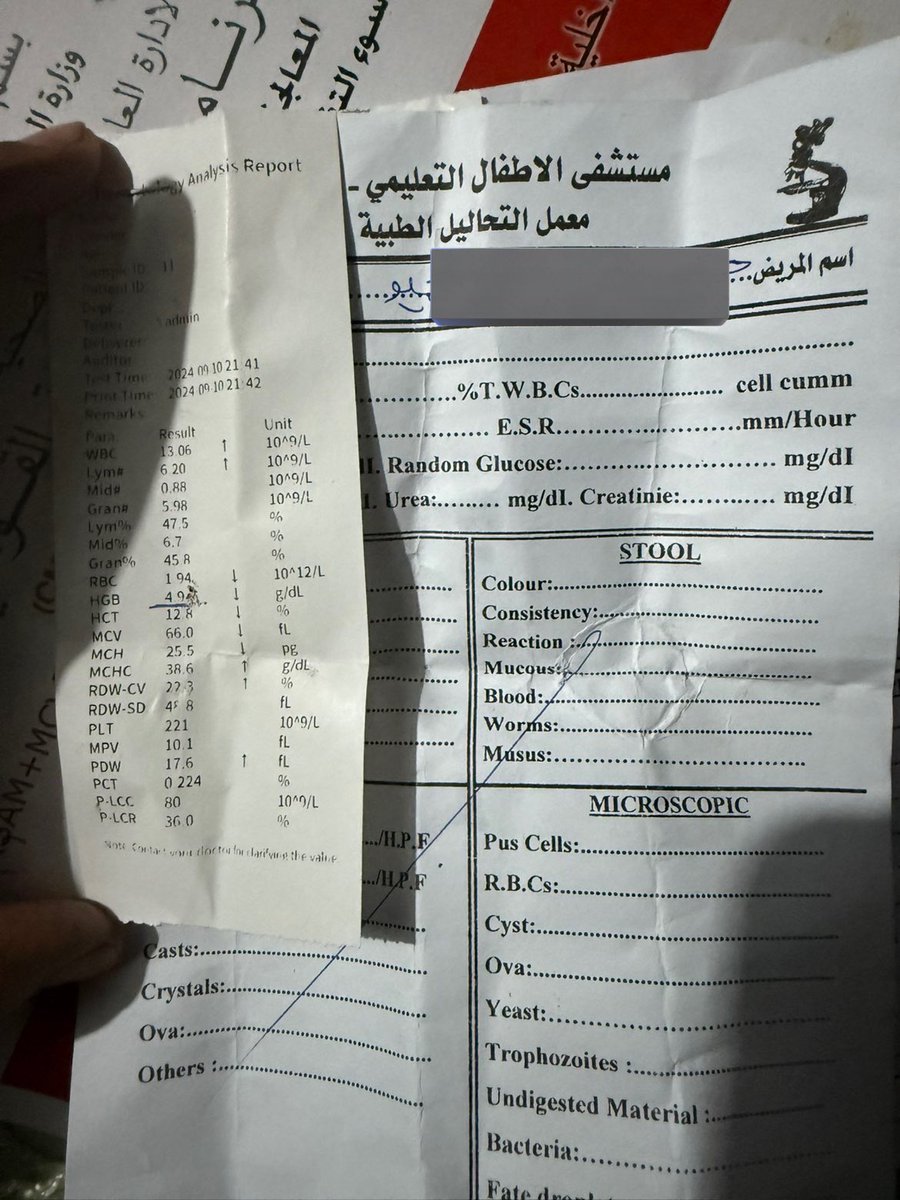 خلية
المعالج
سوء التغ
Analysis Report
Sample ID: 11
Patient ID:
Tester admin
Auditor
Test Time: 2024 09 10 21 41
Print Time: 2024 09 10 21 42
Remarks
Para. Result Unit
WBC 13.06 ↑ 10^9/L
Lym# 6.20 ↑ 10^9/L
Mid# 0.88 10^9/L
Gran# 5.98 10^9/L
Lym% 47.5 %
Mid% 6.7 %
Gran% 45.8 %
RBC 1.94 ↓ 10^12/L
HGB 4.9 ↓ g/dL
HCT 12.8 ↓ %
MCV 66.0 ↓ fL
MCH 25.5 ↓ pg
MCHC 38.6 ↑ g/dL
RDW-CV 22.3 ↑ %
RDW-SD 48.8 fL
PLT 221 10^9/L
MPV 10.1 fL
PDW 17.6 ↑ fL
PCT 0.224 %
P-LCC 80 10^9/L
P-LCR 36.0 %
Note: Contact your doctor for clarifying the value
مستشفى الاطفال التعليمي -
معمل التحاليل الطبية
اسم المريض
%T.W.B.Cs............ cell cumm
E.S.R............mm/Hour
Random Glucose:............ mg/dI
Urea:....... mg/dI. Creatinie:............ mg/dI
STOOL
Colour:............
Consistency:............
Reaction :............
Mucous:............
Blood:............
Worms:............
Musus:............
MICROSCOPIC
Pus Cells:............
R.B.Cs:............
Cyst:............
Ova:............
Yeast:............
Trophozoites :............
Undigested Material :............
Bacteria:............
/H.P.F
/H.P.F
Casts:............
Crystals:............
Ova:............
Others :............